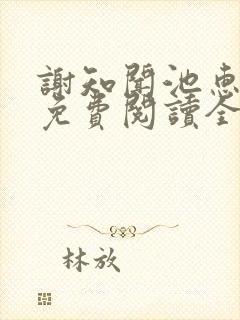 謝知聞池惠
免費閱讀全
林放